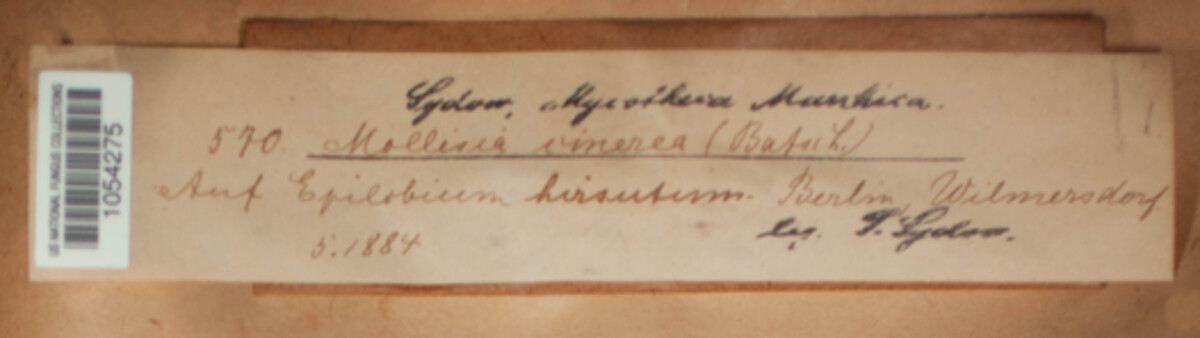 US NATIONAL FUNGUS COLLECTIONS
1054275
Sydow, Mycotheca Marchica.
570. Mollisia cinerea (Batsch.)
Auf Epilobium hirsutum. Berlin, Wilmersdorf.
5.1884
leg. P. Sydow.